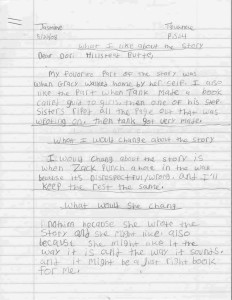 What I like about the story
Dear Don. Hillstest Butte,
My favorite Part of the story was
when Gracy walked home by her self. I also
like the Part when Tank made a book
gave it to Gum. then one of his step
sisters ripet all the Page out that was
working on. then tank got very made.
What I would change about the story
I would chang about the story is
when Zack Punch a hole in the wall
because its disrespectful/wong. And I'll
keep the rest the same.
What would she chang
I nothin because she wrote the
Story and she might like. also
because she might like it the
way it is and the way it sounds.
and it might be a Just right book
for me.